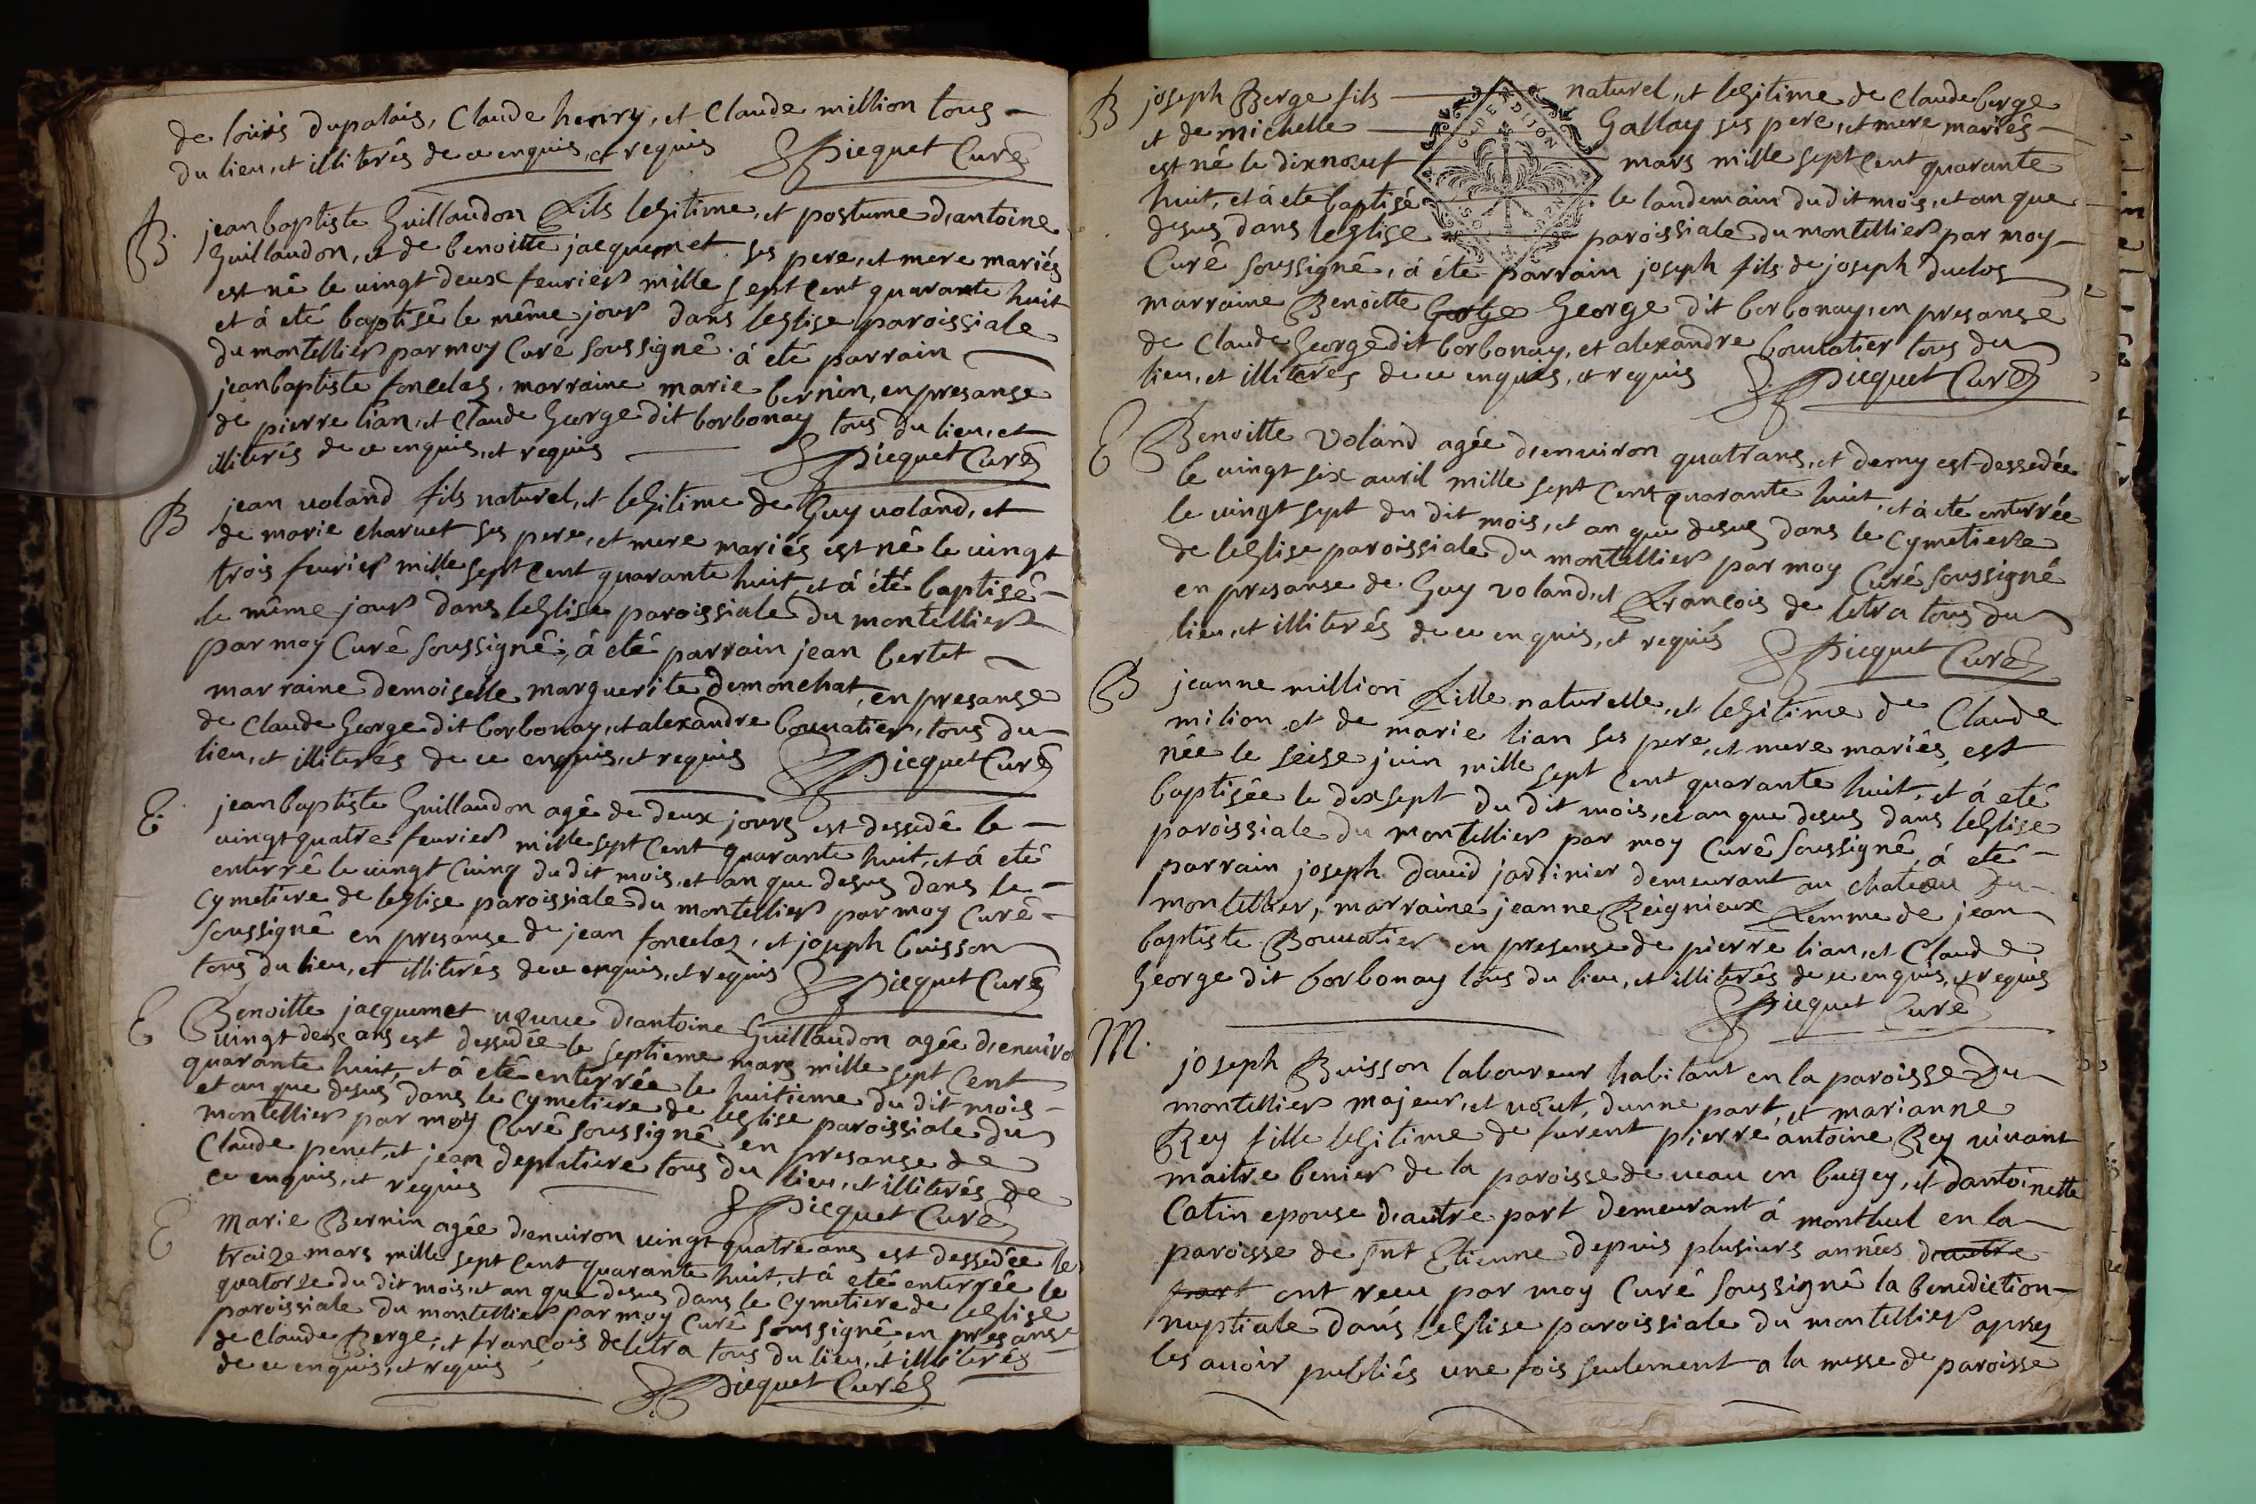 de loüis dupalais, Claude henry, et Claude million tous
du lieu, et illiterés de ce enquis, et requis Picquet Curé
B. jean baptiste Guillaudon fils legitime, et postume d'antoine
Guillaudon, et de benoitte jacquemet ses pere, et mere mariés
est né le vingt deux fevrier mille sept cent quarante huit
et á eté baptisé le même jour dans leglise paroissiale
du montellier par moy Curé soussigné. á eté parrain
jean baptiste foncelas, marraine marie bernin, en presanse
de pierre lian, et Claude George dit borbonay tous du lieu, et
illiterés de ce enquis, et requis Picquet Curé
B jean voland fils naturel, et legitime de Guy voland, et
de marie charvet ses pere, et mere mariés est né le vingt
trois fevrier mille sept cent quarante huit, et á été baptisé
le même jour dans leglise paroissiale du montellier
par moy Curé soussigné; á eté parrain jean bertet
marraine demoiselle marguerite demonchat, en presanse
de Claude George dit borbonay, et alexandre bouvatier, tous du
lieu, et illiterés de ce enquis, et requis Picquet Curé
E. jean baptiste Guillaudon agé de deux jours est dessedé le
vingt quatre fevrier mille sept cent quarante huit, et á eté
enterré le vingt cinq du dit mois, et an que desus dans le
cymetiere de leglise paroissiale du montellier par moy Curé
soussigné en presanse de jean foncelaz, et joseph buisson
tous du lieu, et illiterés de ce enquis, et requis Picquet Curé
E Benoitte jacquemet veuve d'antoine Guillaudon agée d'enviro
vingt deux ans est dessedée le septieme mars mille sept cent
quarante huit, et á eté enterrée le huitieme du dit mois
et an que desus dans le cymetiere de leglise paroissiale du
montellier par moy Curé soussigné en presanse de
Claude penet, et jean deputiere tous du lieu, et illiterés de
ce enquis, et requis Picquet Curé
E Marie Bernin agée d'environ vingt quatre ans est dessedée le
traize mars mille sept cent quarante huit, et á eté enterrée le
quatorze du dit mois, et an que desus dans le cymetiere de leglise
paroissiale du montellier par moy Curé soussigné en presanse
de Claude Berge, et françois deletra tous du lieu, et illiterés
de ce enquis, et requis Picquet Curé
B joseph Berge fils naturel, et legitime de Claude berge
et de michelle Gallay ses pere, et mere mariés
est né le dixnœuf mars mille sept cent quarante
huit, et á eté baptisé le landemain du dit mois, et an que
desus dans leglise paroissiale du montellier par moy
Curé soussigné, á été parrain joseph fils de joseph duclos
marraine Benoitte George George dit borbonay, en presanse
de Claude George dit borbonay, et alexandre bouvatier tous du
lieu, et illiterés de ce enquis, et requis Picquet Curé
G. DE DIJON
E Benoitte voland agée d'environ quatrans, et demy est dessedée
le vingt six avril mille sept cent quarante huit, et á eté enterrée
le vingt sept du dit mois, et an que desus dans le cymetiere
de leglise paroissiale du montellier par moy Curé soussigné
en presanse de Guy voland, et François de letra tous du
lieu, et illiterés de ce enquis, et requis Picquet Curé
B jeanne million fille naturelle, et legitime de Claude
milion et de marie lian ses pere, et mere mariés, est
née le seise juin mille sept cent quarante huit, et á eté
baptisée le dixsept du dit mois, et an que desus dans leglise
paroissiale du montellier par moy Curé soussigné, á eté
parrain joseph david jardinier demeurant au chateau du
montellier, marraine jeanne Reignieux femme de jean
baptiste Bouvatier en presense de pierre lian, et Claude
George dit borbonay tous du lieu, et illiterés de ce enquis, et requis
Picquet Curé
M. joseph Buisson laboureur habitant en la paroisse du
montellier majeur, et vœuf, dunne part, et marianne
Rey fille legitime de furent pierre antoine Rey vivant
maitre benier de la paroisse de veau en bugey, et dantoinette
Catin epouse d'autre part demeurant á monthul en la
paroisse de snt Etienne depuis plusiurs années d'autre
part ont recu par moy Curé soussigné la benediction
nuptiale dans leglise paroissiale du montellier aprez
les avoir publiés une fois seulement a la messe de paroisse